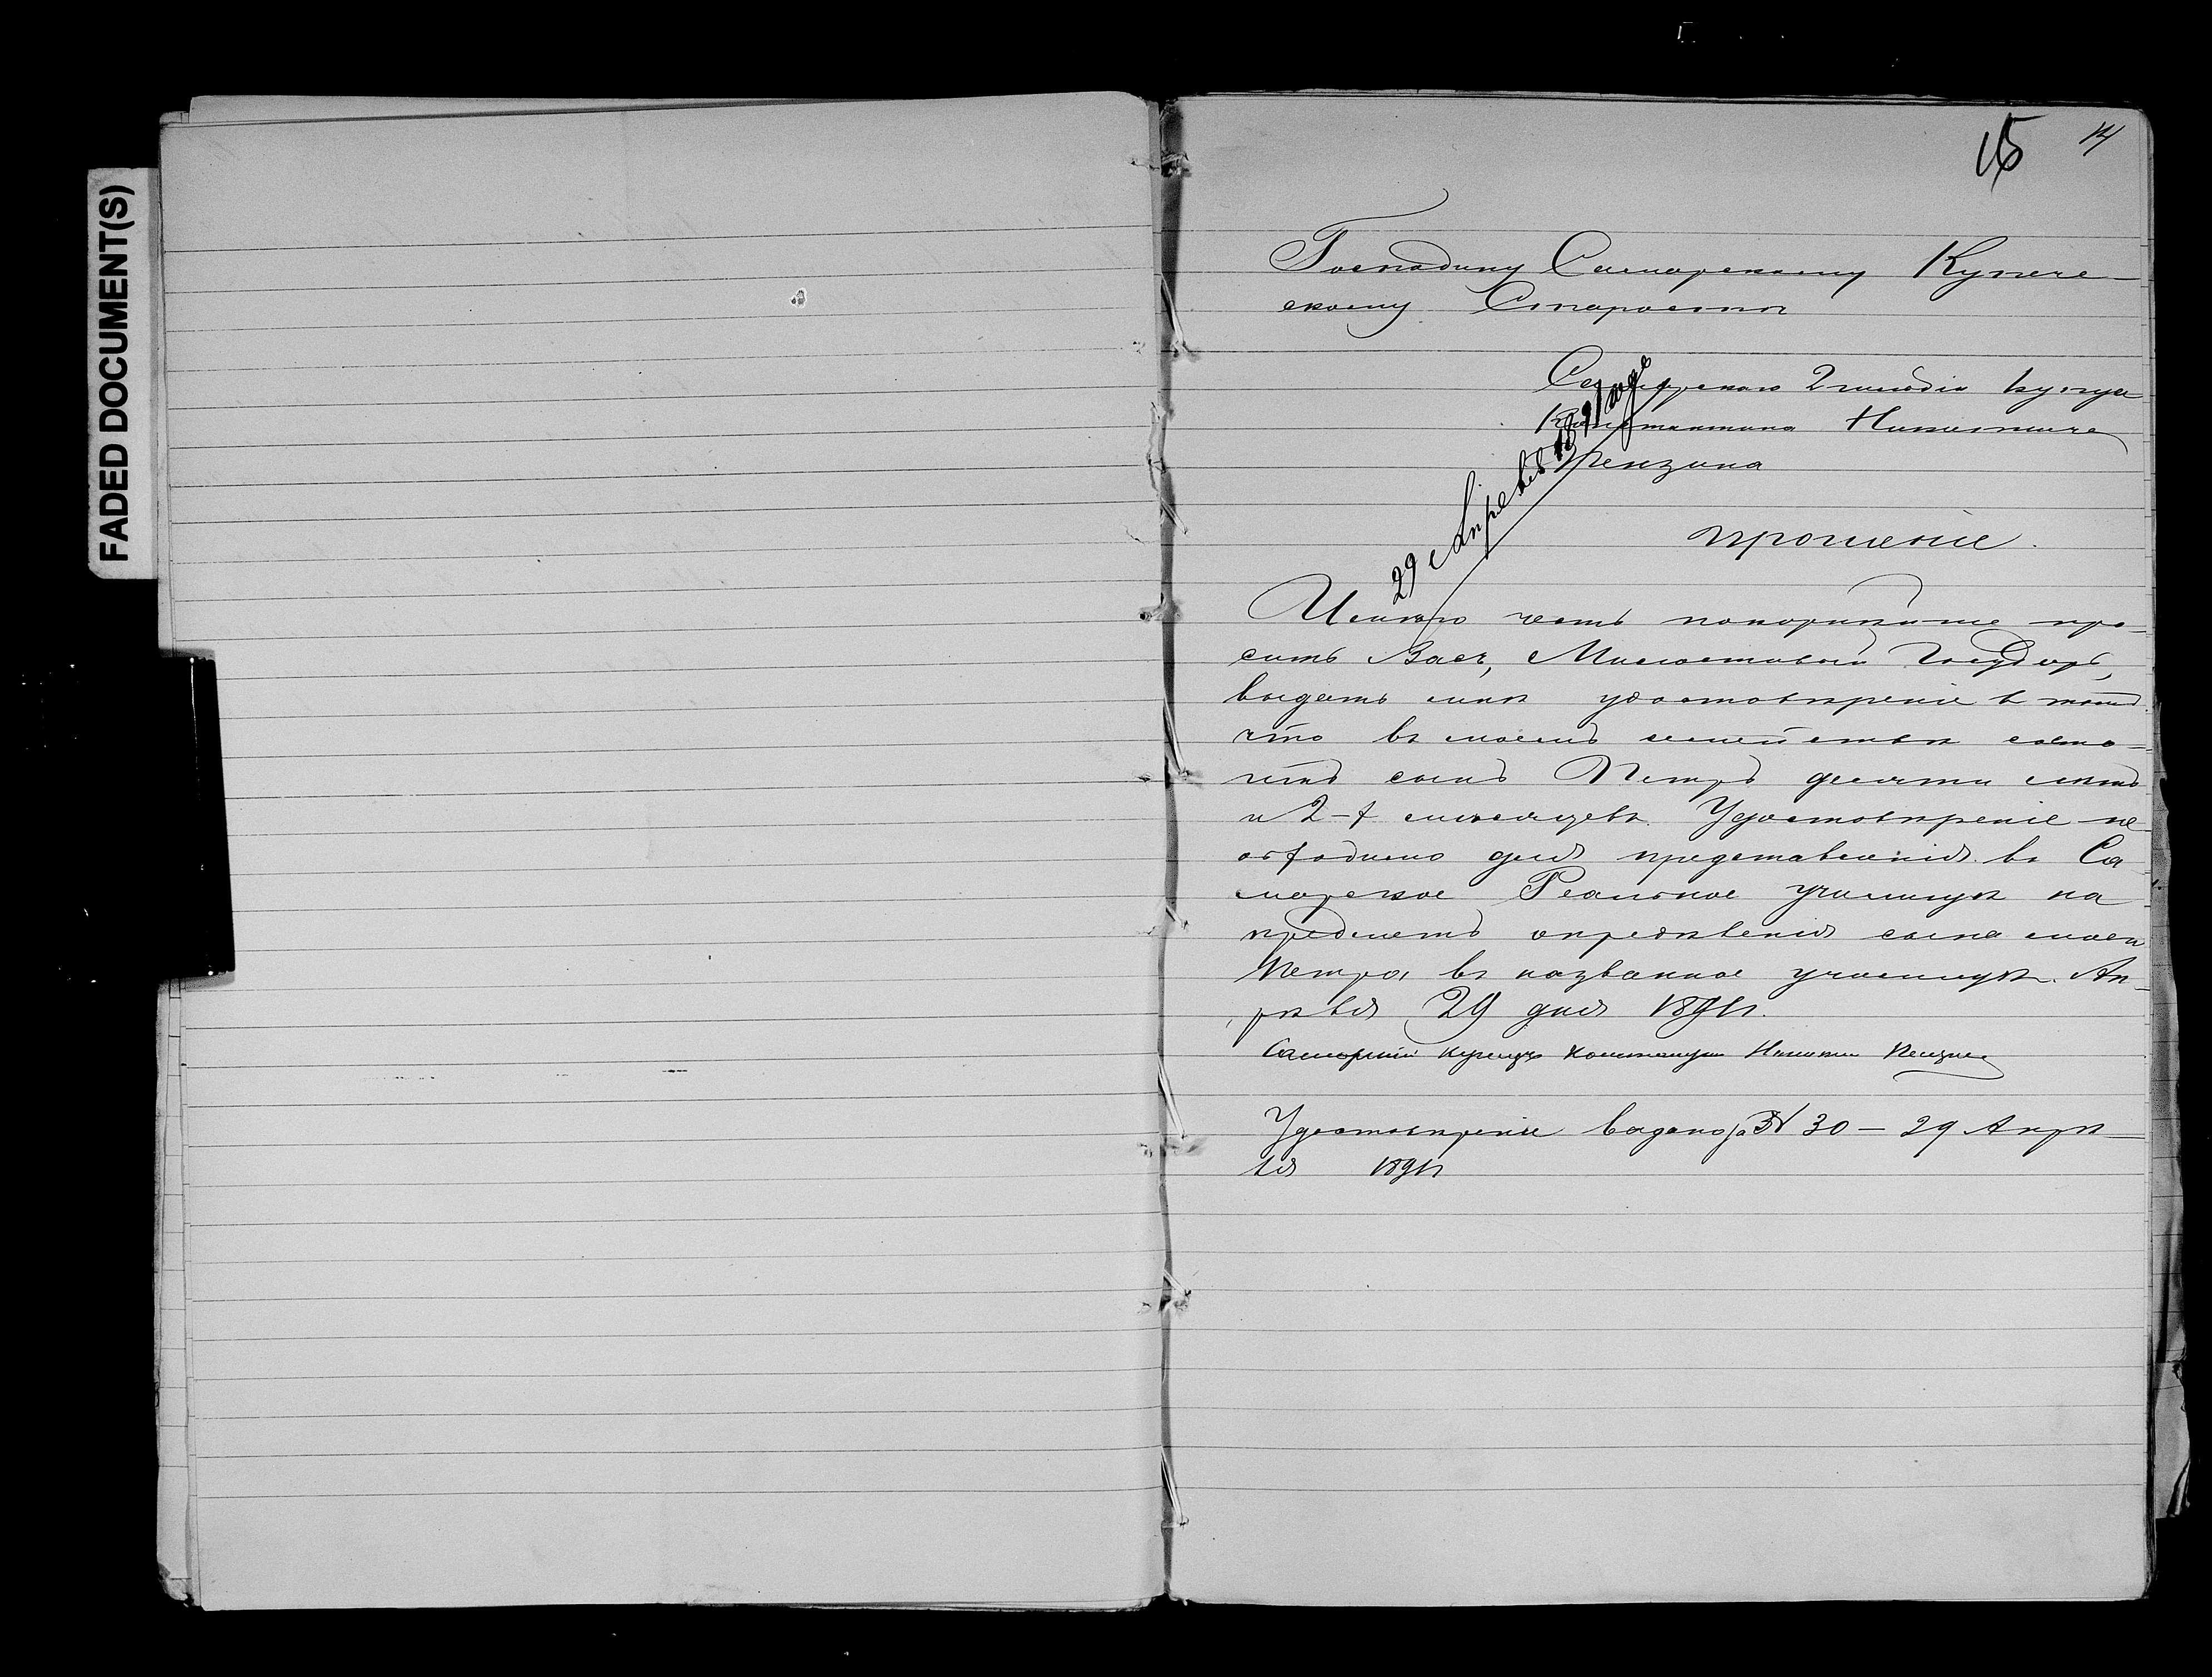 FADED DOCUMENT(S)
15 14
Господину Самарскому Купече-
скому Старостѣ
Самарского 2 гильдіи купца
Константина Никитича
Пензина
прошеніе.
29 Апреля 1891 года
Имѣю честь покорнѣйше про-
сить Васъ, Милостивый Государь,
выдать мнѣ удостовѣреніе въ томъ
что въ моемъ семействѣ состо-
итъ сынъ Петръ десяти лѣтъ
и 2-х месяцевъ. Удостовѣреніе не-
обходимо для представленія въ Са-
марское Реальное училище на
предметъ опредѣленія сына моего
Петра въ названное училище. Ап-
рѣля 29 дня 1891 г.
Самарский купецъ Константин Никитин Пензин
Удостовѣреніе выдано за № 30 – 29 Апрѣ-
ля 1891 г